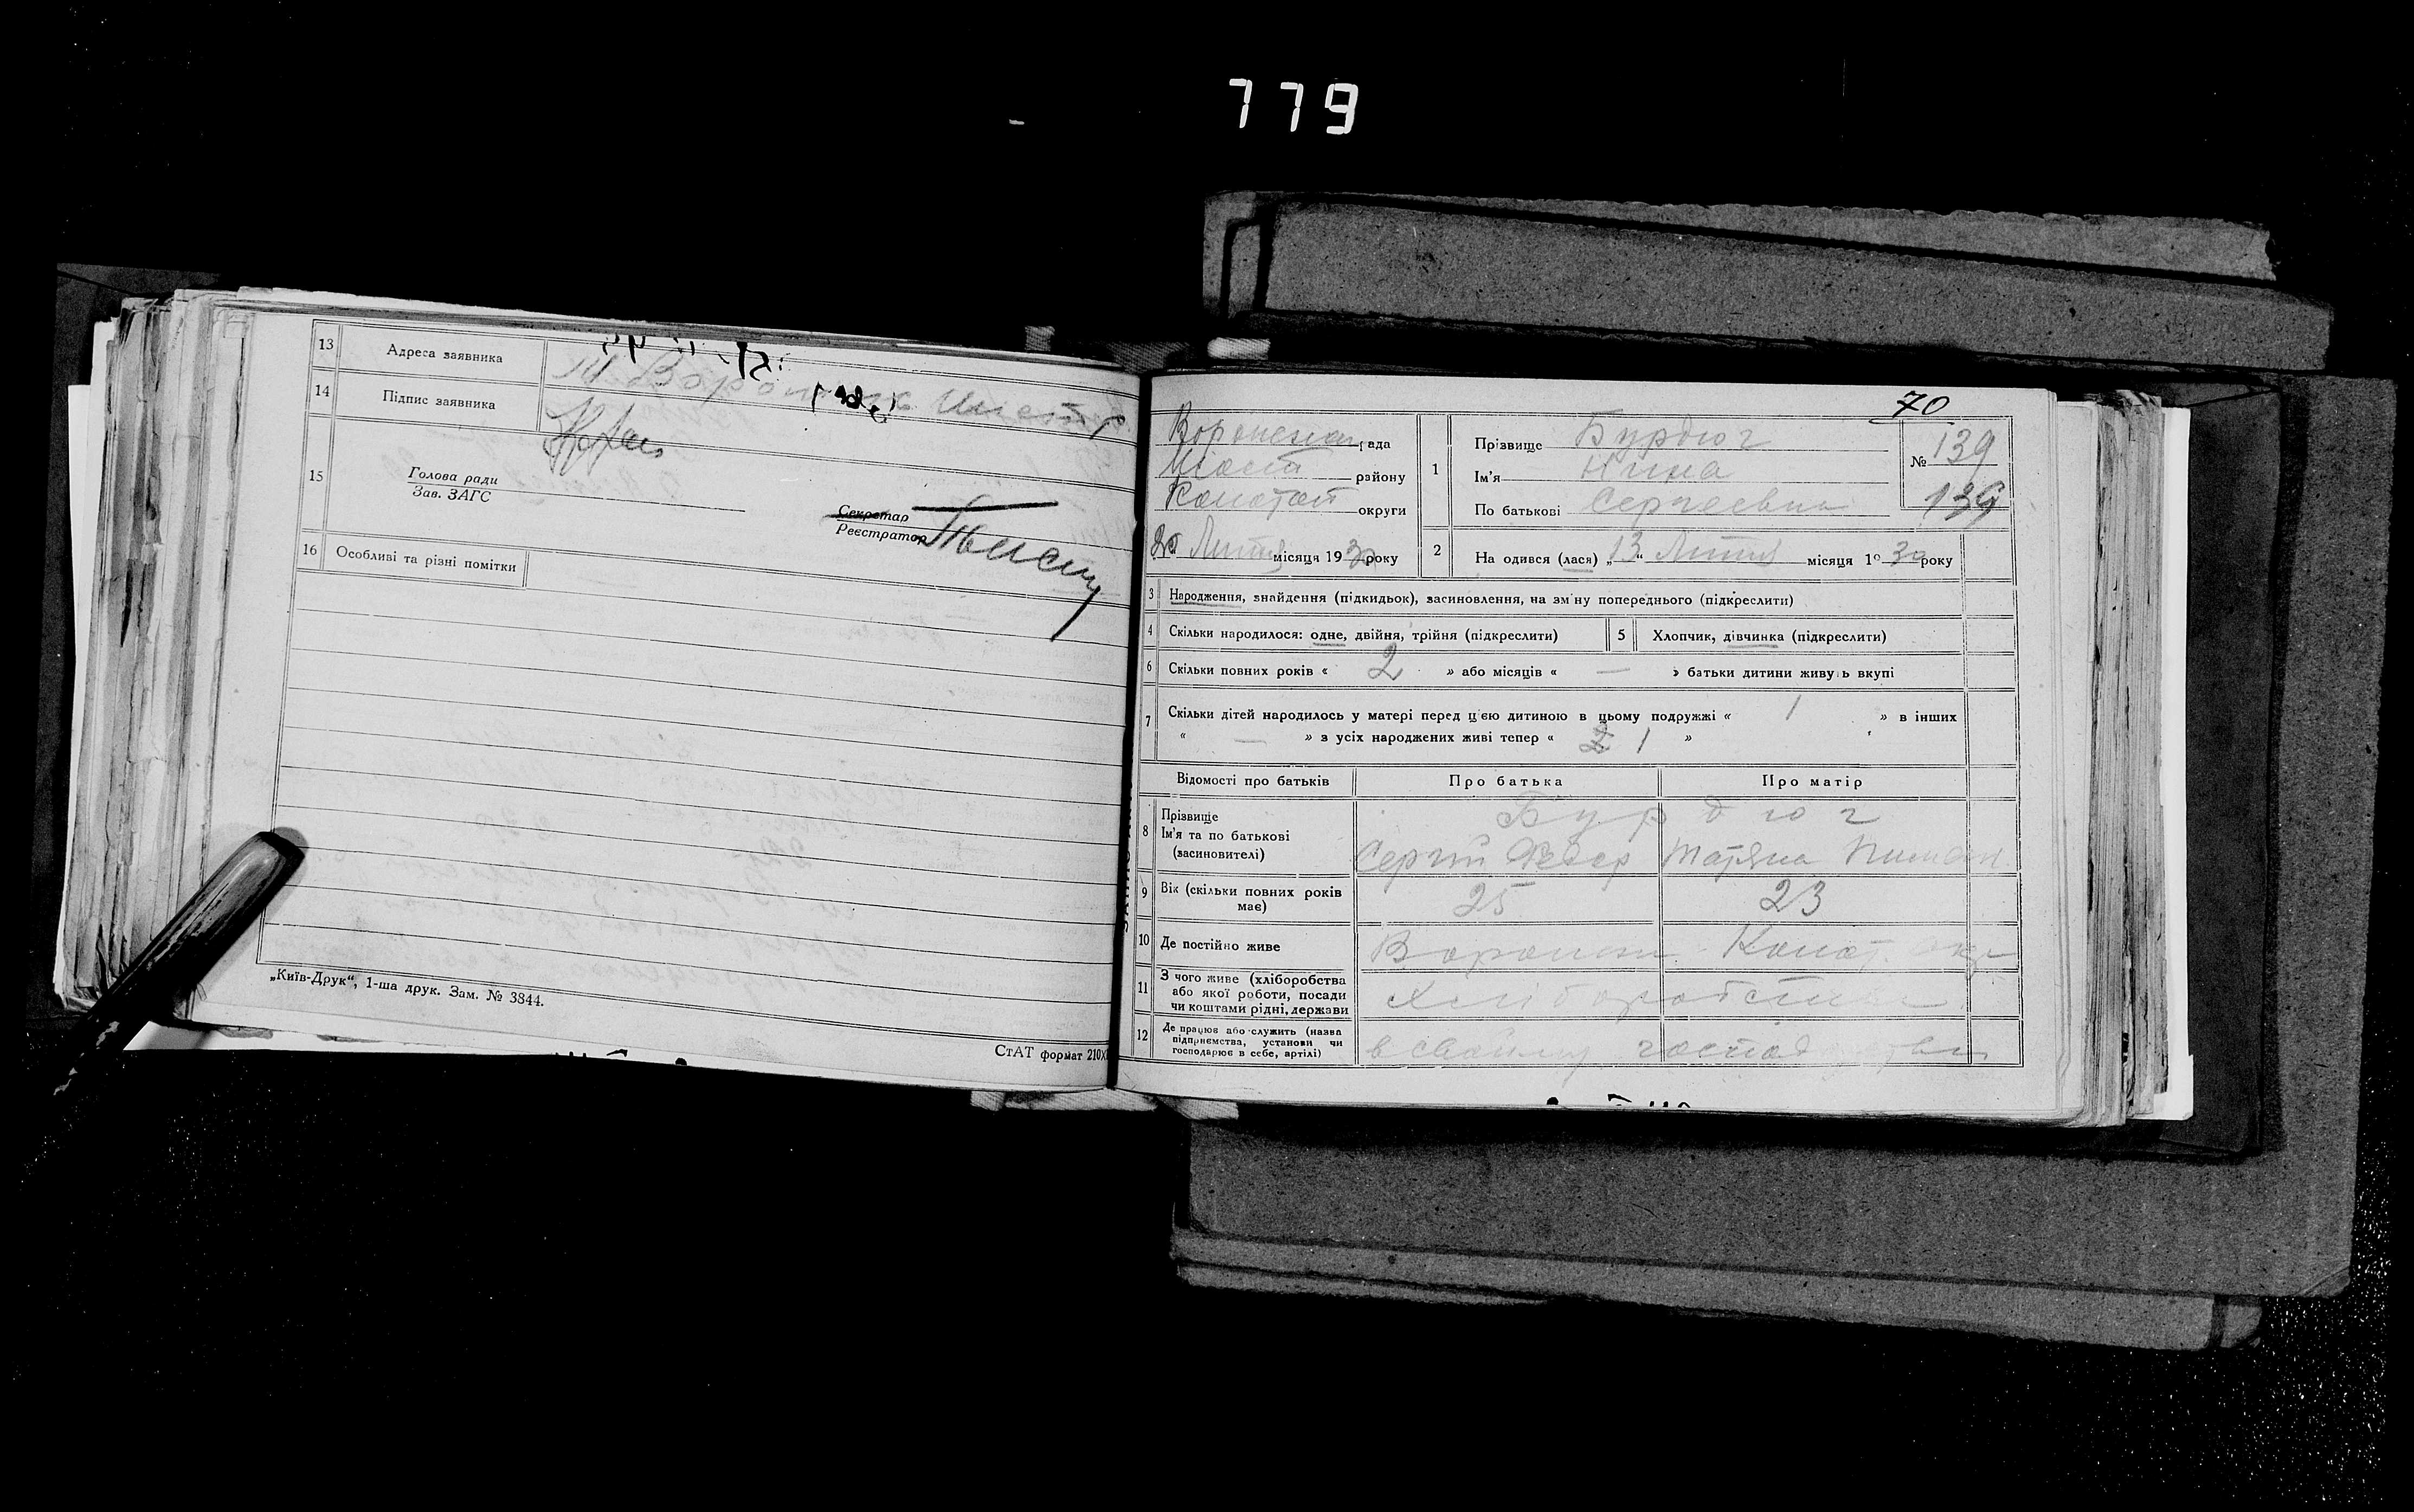 779
13 Адреса заявника
14 Підпис заявника
15 Голова ради
Зав. ЗАГС
Секретар
Реєстратор
16 Особливі та різні помітки
„Київ-Друк“, 1-ша друк. Зам. № 3844.
СтАТ формат 210х
70
рада
району
Конотоп округи
20 Лютня місяця 1930 року
1 Прізвище Бурдюг
Ім'я Нина
По батькові Сергеевна
№ 139
139
2 На одився (лася) „13“ Лютня місяця 1930 року
3 Народження, знайдення (підкидьок), засиновлення, на зм ну попереднього (підкреслити)
4 Скільки народилося: одне, двійня, трійня (підкреслити) 5 Хлопчик, дівчинка (підкреслити)
6 Скілки повних років « 2 » або місяців « — » батьки дитини живуть вкупі
7 Скільки дітей народилось у матері перед цією дитиною в цьому подружжі « 1 » в інших
« — » з усіх народжених живі тепер « 1 »
Відомості про батьків Про батька Про матір
8 Прізвище
Ім'я та по батькові
(засиновителі)
Бурдюг
Сергій Федер Татяна
9 Вік (скільки повних років
має)
25 23
10 Де постійно живе Воронеж. Конот. окр
11 З чого живе (хліборобства
або якої роботи, посади
чи коштами рідні, держави
12 Де працює або служить (назва
підприємства, установи чи
господарює в себе, артілі)